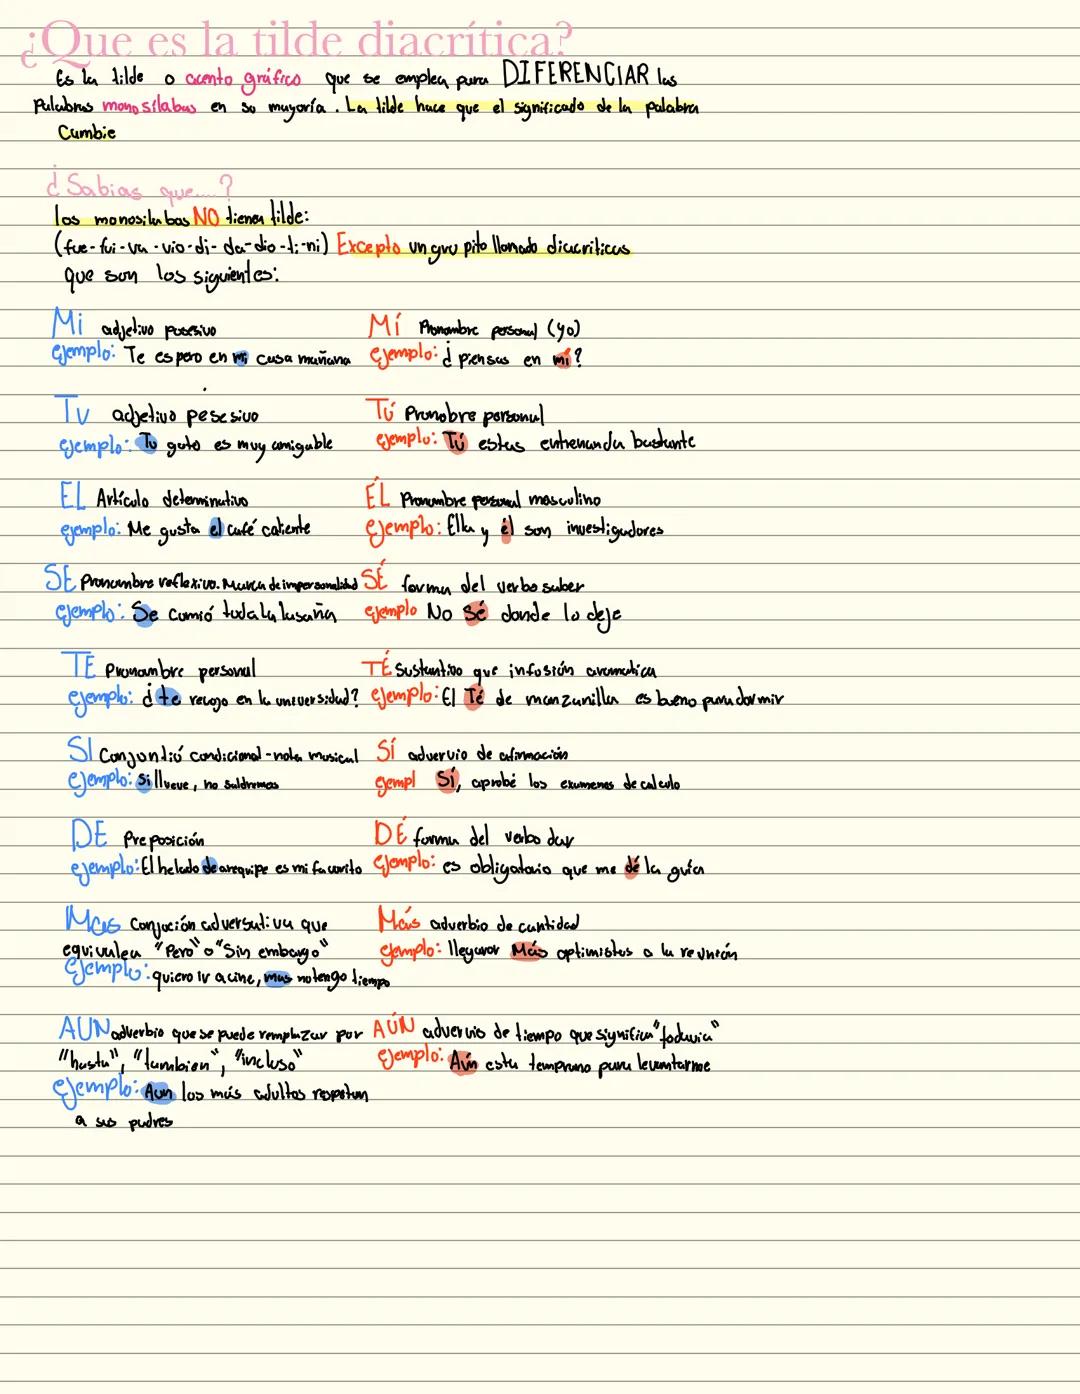 ¿Que es la tilde diacrítica?
Es la tilde o acento gráfico que se emplea para DIFERENCIAR las
Palabras monosílabas en su mayoría. La tilde hace que el significado de la palabra
Cambie
¿Sabias que....?
los monosilabas NO tienen tilde:
(fue-fui-va-vio-di-da-dio-ti-ni) Excepto un grupito llamado diacriticas
que son los siguientes:
Mi adjetivo posesivo
ejemplo: Te espero en mi casa mañana
Mí Pronombre personal (yo)
ejemplo: ¿piensas en mí?
Tu adjetivo pesesivo
ejemplo: Tu gato es muy amigable
Tú Pronobre personal
ejemplo: Tú estas entrenando bastante
EL Artículo determinativo
ejemplo: Me gusta el café caliente
ÉL Pronombre personal masculino
ejemplo: Ella y él son investigadores
SE Pronombre reflexivo. Marca de impersonalidad
ejemplo: Se comió toda la lasaña
SÉ forma del verbo saber
ejemplo No sé donde lo deje
TE Pronombre personal
ejemplo: ¿te recojo en la universidad?
TÉ Sustantivo que infusión aromatica
ejemplo: El Té de manzanilla es bueno para dormir
SI Conjontió condicional-nota musical
ejemplo: si llueve, no saldremos
SÍ advervio de afirmación
ejempl Sí, aprobé los examenes de calculo
DE Preposición
ejemplo: El helado de arequipe es mi favorito
DÉ forma del verbo dar
ejemplo: es obligatorio que me dé la guia
Mas Conjoción adversativa que
equivalea "Pero" o "Sin embargo"
Ejemplo: quiero ir a cine, mas no tengo tiempo
Más adverbio de cantidad
ejemplo: llegaron Más optimistas a la reunión
AUN adverbio que se puede remplazar por
"hasta", "tambien", "incluso"
ejemplo: Aun los más adultos respetan
a sus padres
AÚN advervio de tiempo que significa "todavia"
ejemplo: Aún esta temprano para levantarme